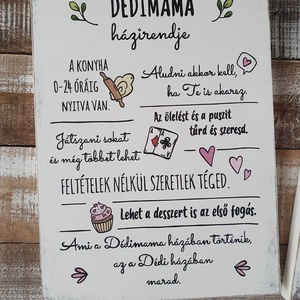 DÉDIMAMA
házirendje
A KONYHA
0-24 ÓRÁIG
NYITVA VAN.
Aludni akkor kell,
ha Te is akarsz.
Az ölelést és a puszit
tűrd és szeresd.
Játszani sokat
és még többet lehet.
FELTÉTELEK NÉLKÜL SZERETLEK TÉGED.
Lehet a desszert is az első fogás.
Ami a Dédimama házában történik,
az a Dédi házában
marad.